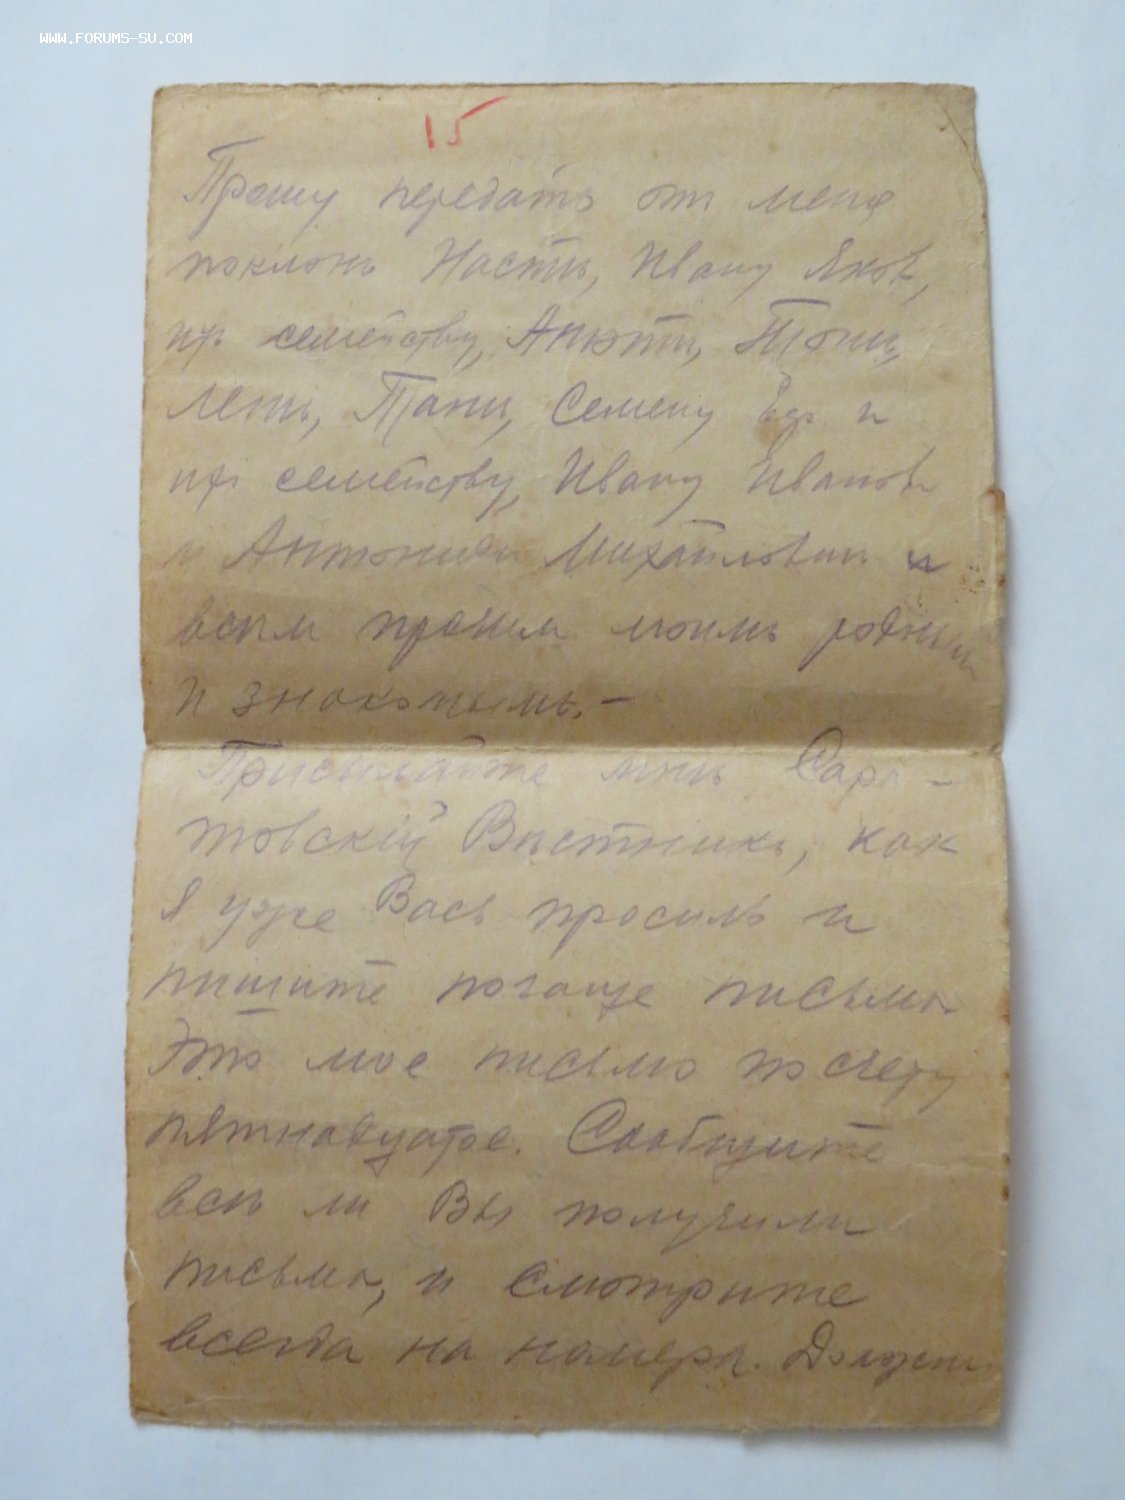 WWW.FORUMS-SU.COM
15
Прошу передать от меня
поклонъ Насти, Ивану Яков,
семейству, Анюти, Тони,
Лени, Тани, Семену Ег и
семейству, Ивану Иванов
и Антонини Михайловни и
всем прочим моимъ родным
и знакомымъ.-
Присылайте мнѣ Сара-
товскій Вѣстникъ, как
я уже Васъ просилъ и
пишите почаще письма
Это мое письмо по счету
пятнадцатое. Сообщите
всѣ ли Вы получили
письма, и смотрите
всегда на номера. Должны